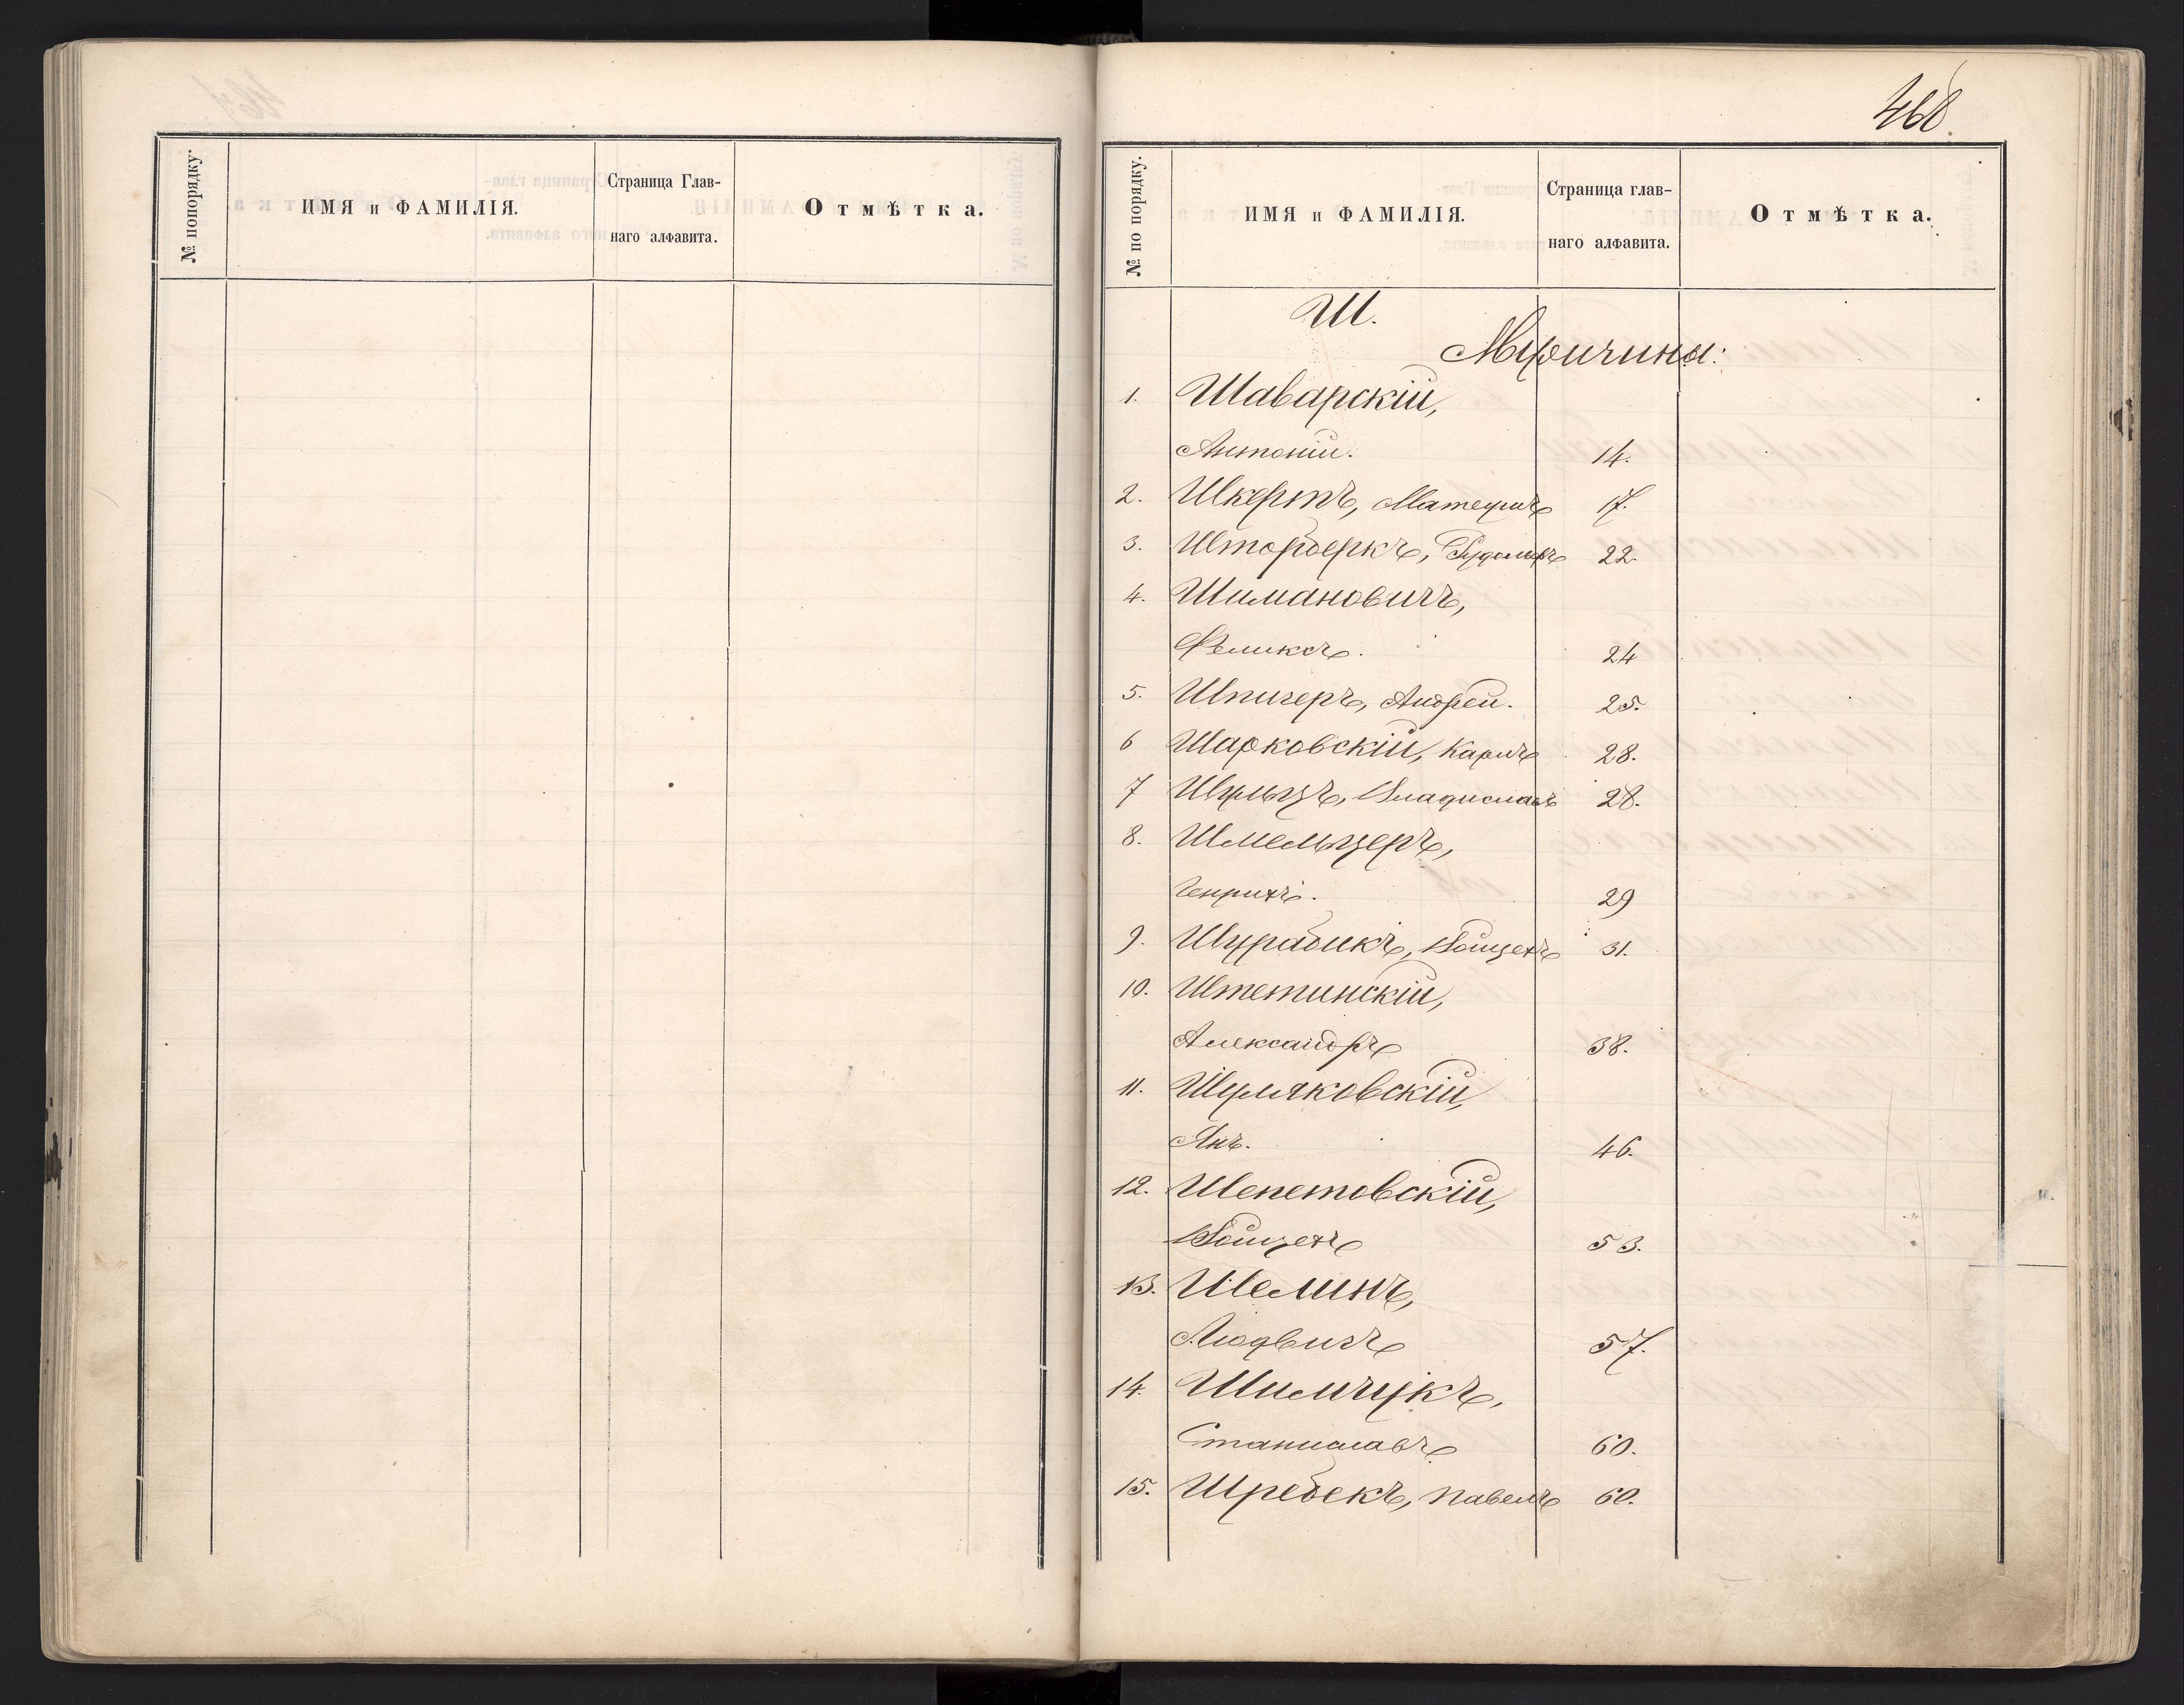 № попорядку.
ИМЯ и ФАМИЛІЯ.
Страница Глав-
наго алфавита.
Отмѣтка.
468.
№ по порядку.
ИМЯ и ФАМИЛІЯ.
Страница глав-
наго алфавита.
Отмѣтка.
Ш.
Мужчины:
1. Шаварскій,
Антоній. 14.
2. Шкертъ, Матеушъ 17.
3. Шторберкъ, Рудольфъ 22.
4. Шимановичъ,
Феликсъ. 24
5. Шпигеръ, Андрей. 25.
6 Шарковскій, Карлъ 28.
7 Шульцъ, Владиславъ 28.
8. Шмельцеръ,
Генрихъ. 29
9. Шурабикъ, Войцехъ 31.
10. Штетинскій,
Александръ 38.
11. Шумяковскій,
Янъ. 46.
12. Шепетовскій,
Войцехъ 53.
13. Шелинъ,
Людвигъ 57.
14. Шимчукъ,
Станиславъ 60.
15. Шребекъ, Павелъ 60.